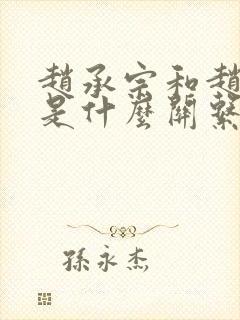 趙承宗和趙
是什麼關繫
孫永杰